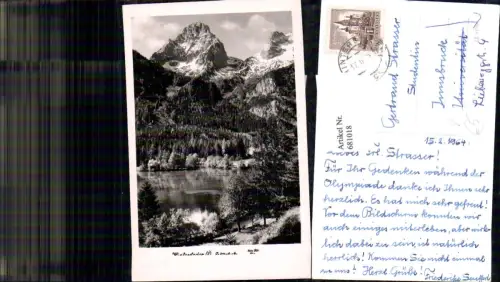 Gertraud Strasser
Studentin
Innsbruck
Universität
Artikel Nr.
681018
15.2.1964.
Strasser!
Für Ihr Gedenken während der
Olympiade danke ich Ihnen sehr
herzlich. Es hat mich sehr gefreut!
Vor dem Bildschirm konnten wir
auch einiges miterleben, aber wirk-
lich dabei zu sein, ist natürlich
herrlich! Kommen Sie nicht einmal
zu uns? Herzl. Grüße! Friederike